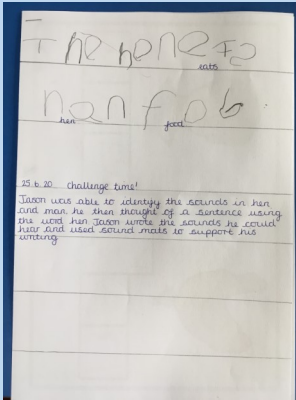 The heneTs
eats
hanfob
hen food
25.6.20 challenge time!
Jason was able to identify the sounds in hen
and man. he then thought of a sentence using
the word hen. Jason wrote the sounds he could
hear and used sound mats to support his
writing